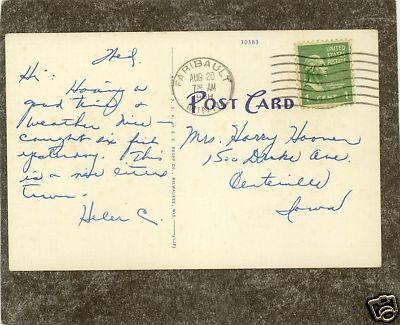 Wed.
Hi:
Having a
good time &
weather nice -
caught six fish
yesterday. This
is a nice little
town.
Helen C.
30383
FARIBAULT
AUG 20
7 30 AM
MINN.
UNITED
STATES
POSTAGE
1 CENT 1
POST CARD
Mrs. Harry Hoover
1500 Drake Ave.
Centerville
Iowa